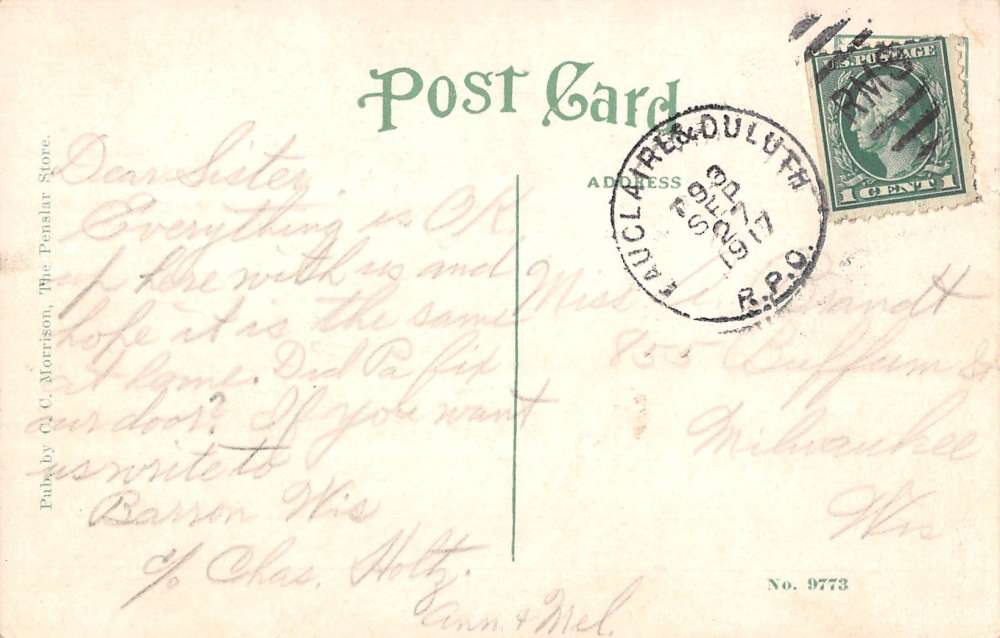 Post Card
ADDRESS
Pub. by C. C. Morrison, The Penslar Store.
U.S. POSTAGE
1 CENT 1
RMS
EAU CLAIRE & DULUTH
SEP 3
1917
R.P.O.
Dear Sister
Everything is OK
up here with us and
hope it is the same
at home. Did Pa fix
our door? If you want
us write to
Barron Wis
c/o Chas. Holtz.
Ann & Mel.
Miss
855 Buffum St
Milwaukee
Wis
No. 9773